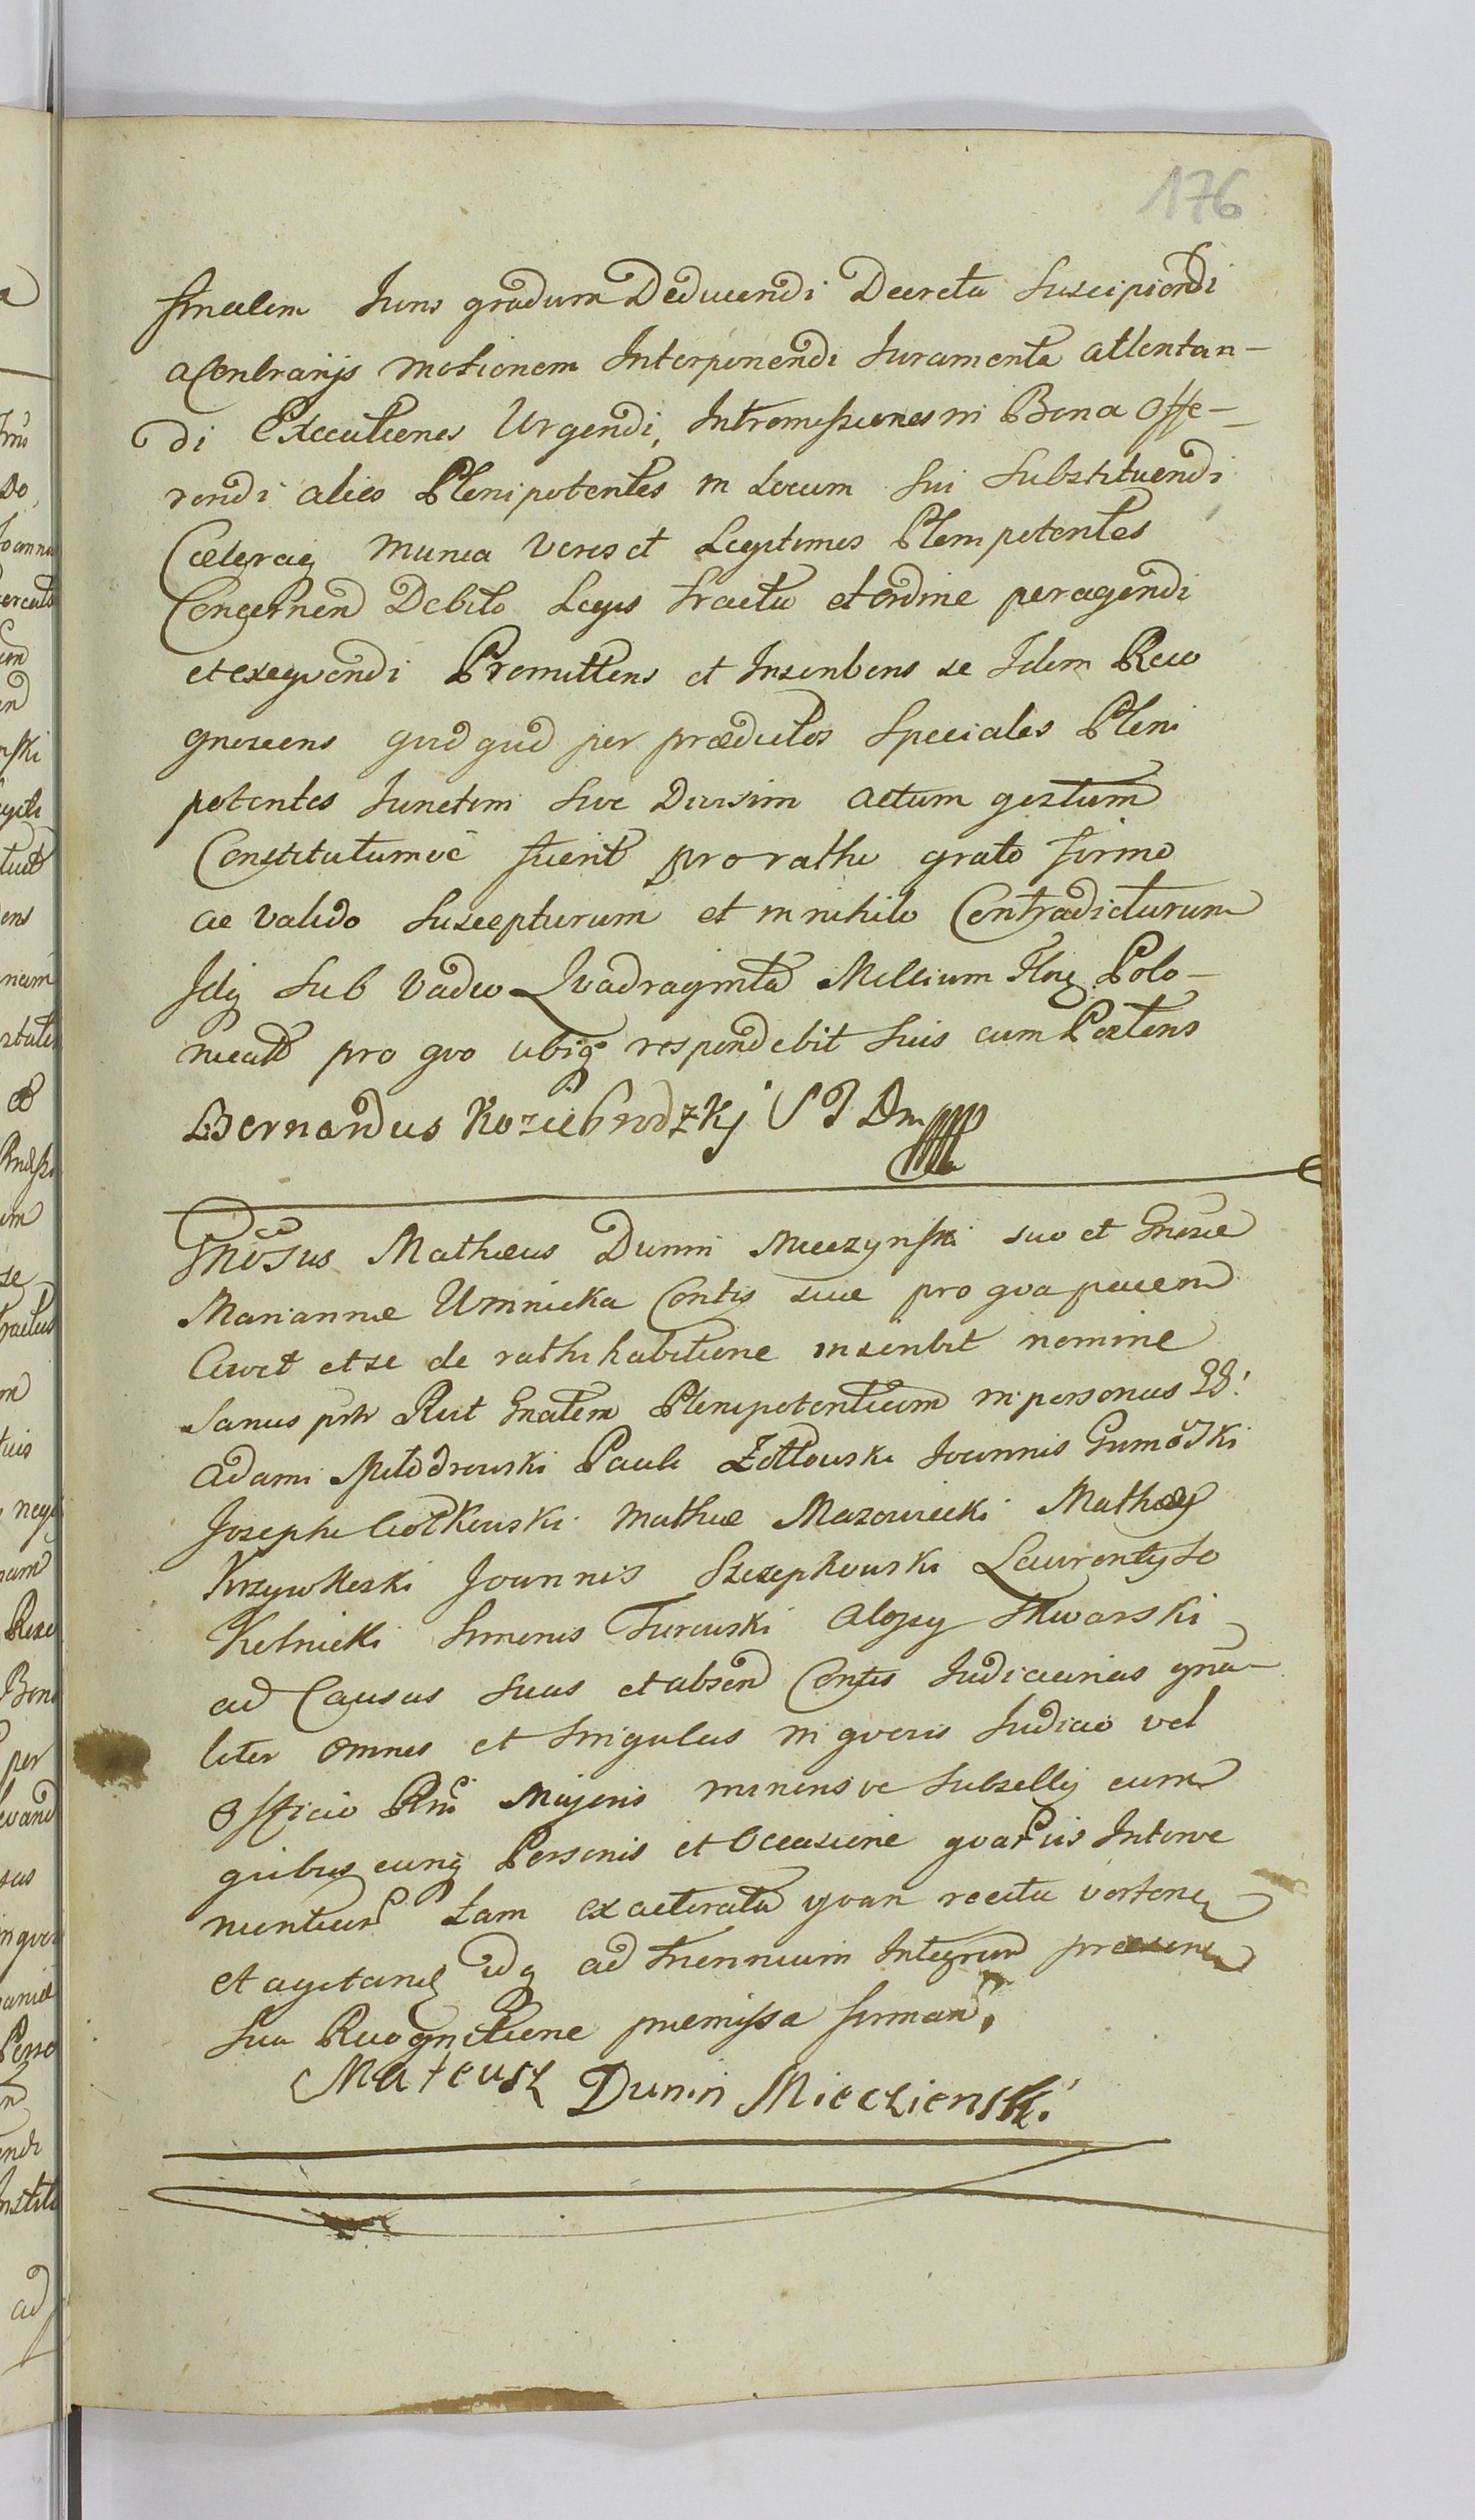 176
finalem Juris gradum Deducendi Decreta Suscipiendi
a Contrarijs motionem Interponendi Juramenta attentan-
di Executiones Urgendi, Intromissiones in Bona Offe-
rendi alios Plenipotentes in Locum sui Substituendi
Caeteraq munia veros et Legitimos Plenipotentes
Concernen Debito Legis tractu et ordine peragendi
et exeqvendi Promittens et Inscribens se Idem Reco
gnoscens qvidqvid per praedictos Speciales Pleni
potentes Junctim sive Divisim actum gestum
Constitutumve fuerit pro rathi grato firmo
ac valido Suscepturum et in nihilo Contradicturum
Idq Sub Vadio Qvadraginta Millium Flor Polo-
nicali pro qvo ubiq respondebit Suis cum Posteris
Bernardus Koziebrodzkj S J Dm
Gnosus Mathaeus Dunin Mieczynski suo et Gnosae
Mariannae Umnicka Contis suae pro qva pacem
Cavet et se de rathihabitione inscribit nomine
Sanus prtr Rcit Gnalem Plenipotentiam in personas GG:
Adami Młodrowski Pauli Żółtowski Joannis Gumowski
Josephi Ciołkowski Mathiae Mazowiecki Mathaei
Krzywkoski Joannis Szczepkowski Laurentij So
Kolnicki Simonis Turowski Aloysy Skwarski
ad Causas Suas et absen Contis Judiciarias gna-
liter omnes et Singulas in qvovis Judicio vel
Officio Rni Majoris minorisve Subsellij cum
qvibuscunq Personis et Occasione qvarvis Interve
nientium tam ex acticatu qvam reciti verten
et agitan idq ad triennium Integrum praesen
Sua Recognitione praemissa firman.
Mateusz Dunin Mieczienski